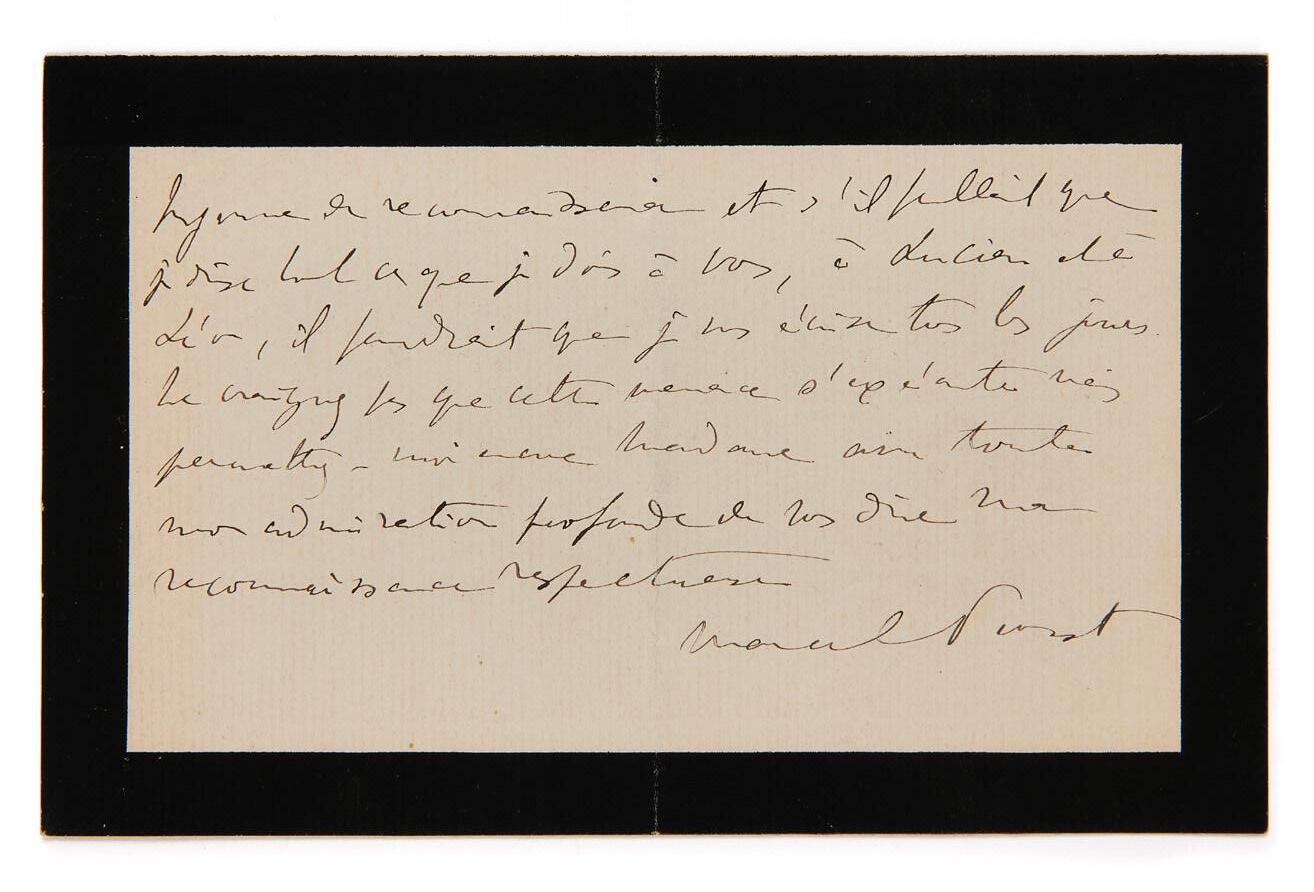 personne de recommandation et s'il fallait que
je dise tout ce que je dois à vous, à Lucien et à
Léon, il faudrait que je vous écrive tous les jours.
Ne craignez pas que cette menace s'exécute mais
permettez-moi encore Madame avec toute
mon admiration profonde de vous dire ma
reconnaissance respectueuse
Marcel Proust